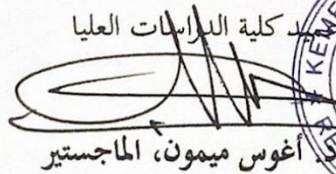 كلية الدراسات العليا
أغوس ميمون، الماجستير